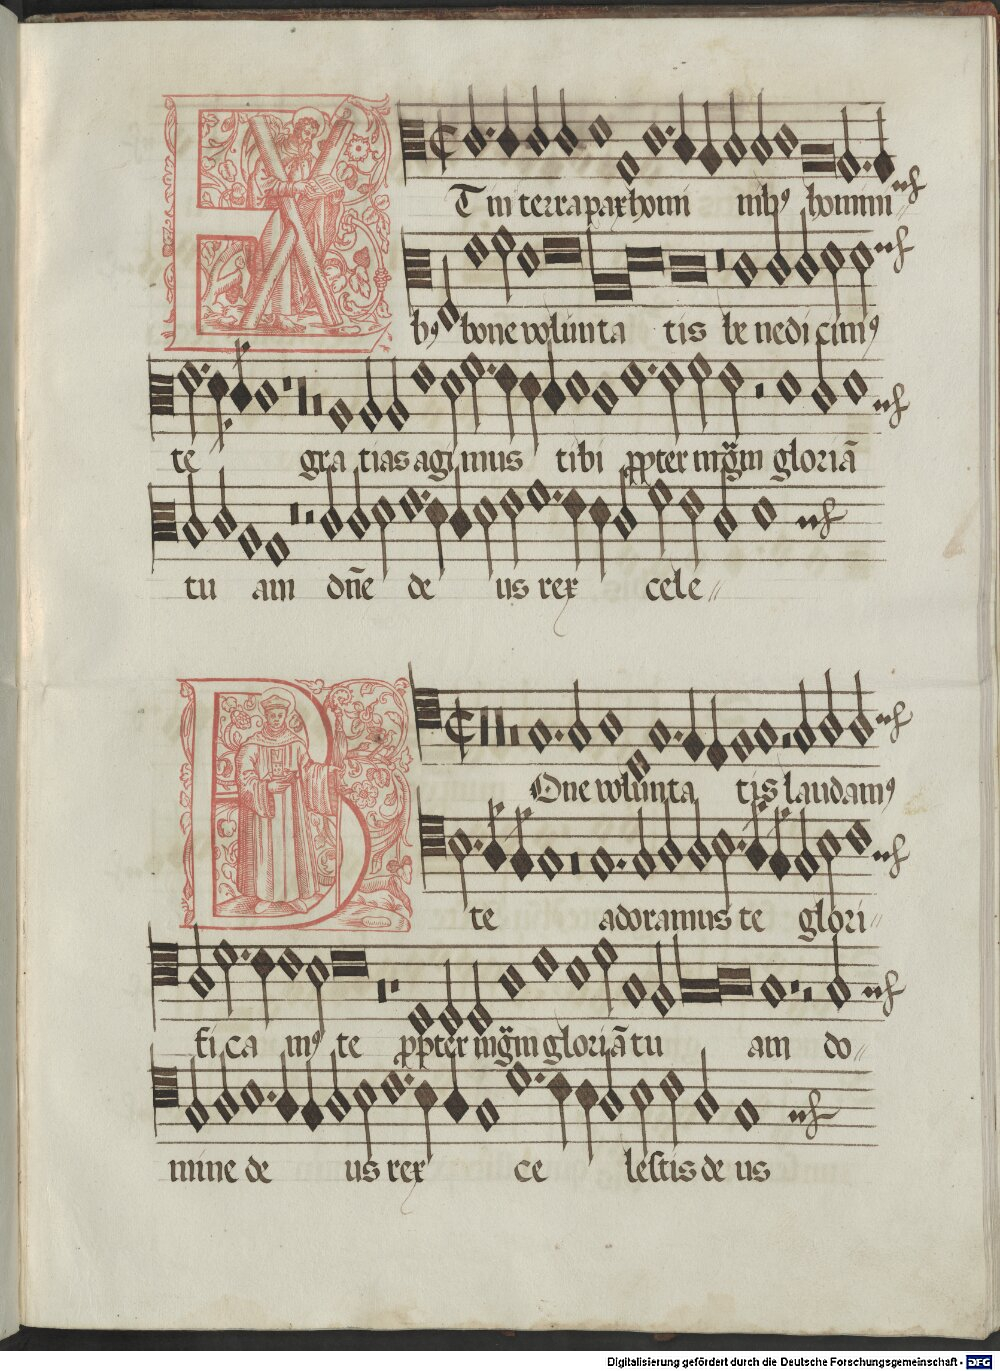 ET in terra pax homi nibꝰ homini
bꝰ bone volunta tis be nedi cimꝰ
te gra tias agi mus tibi ꝓpter mgᷓm gloriā
tu am dn̄e de us rex cele
BOne volunta tis laudamꝰ
te adoramus te glori
fi ca mꝰ te ꝓpter mgᷓm gloriā tu am do
mine de us rex ce lestis de us
Digitalisierung gefördert durch die Deutsche Forschungsgemeinschaft - DFG